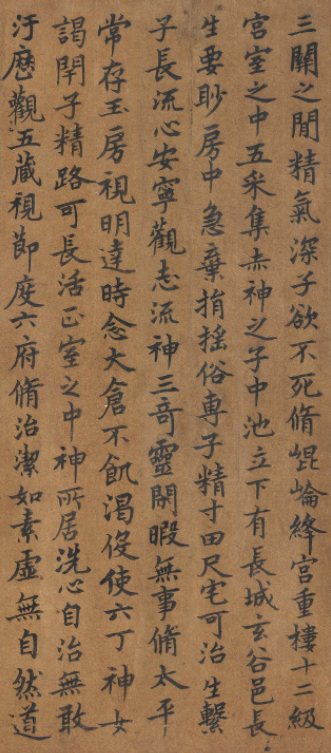 三關之間精氣深子欲不死脩崐崘絳宮重樓十二級
宮室之中五采集赤神之子中池立下有長城玄谷邑長
生要眇房中急棄捐搖俗專子精寸田尺宅可治生繫
子長流心安寧觀志流神三奇靈閑暇無事脩太平
常存玉房視明達時念大倉不飢渴役使六丁神女
謁閉子精路可長活正室之中神所居洗心自治無敢
汙歷觀五藏視節度六府脩治潔如素虛無自然道